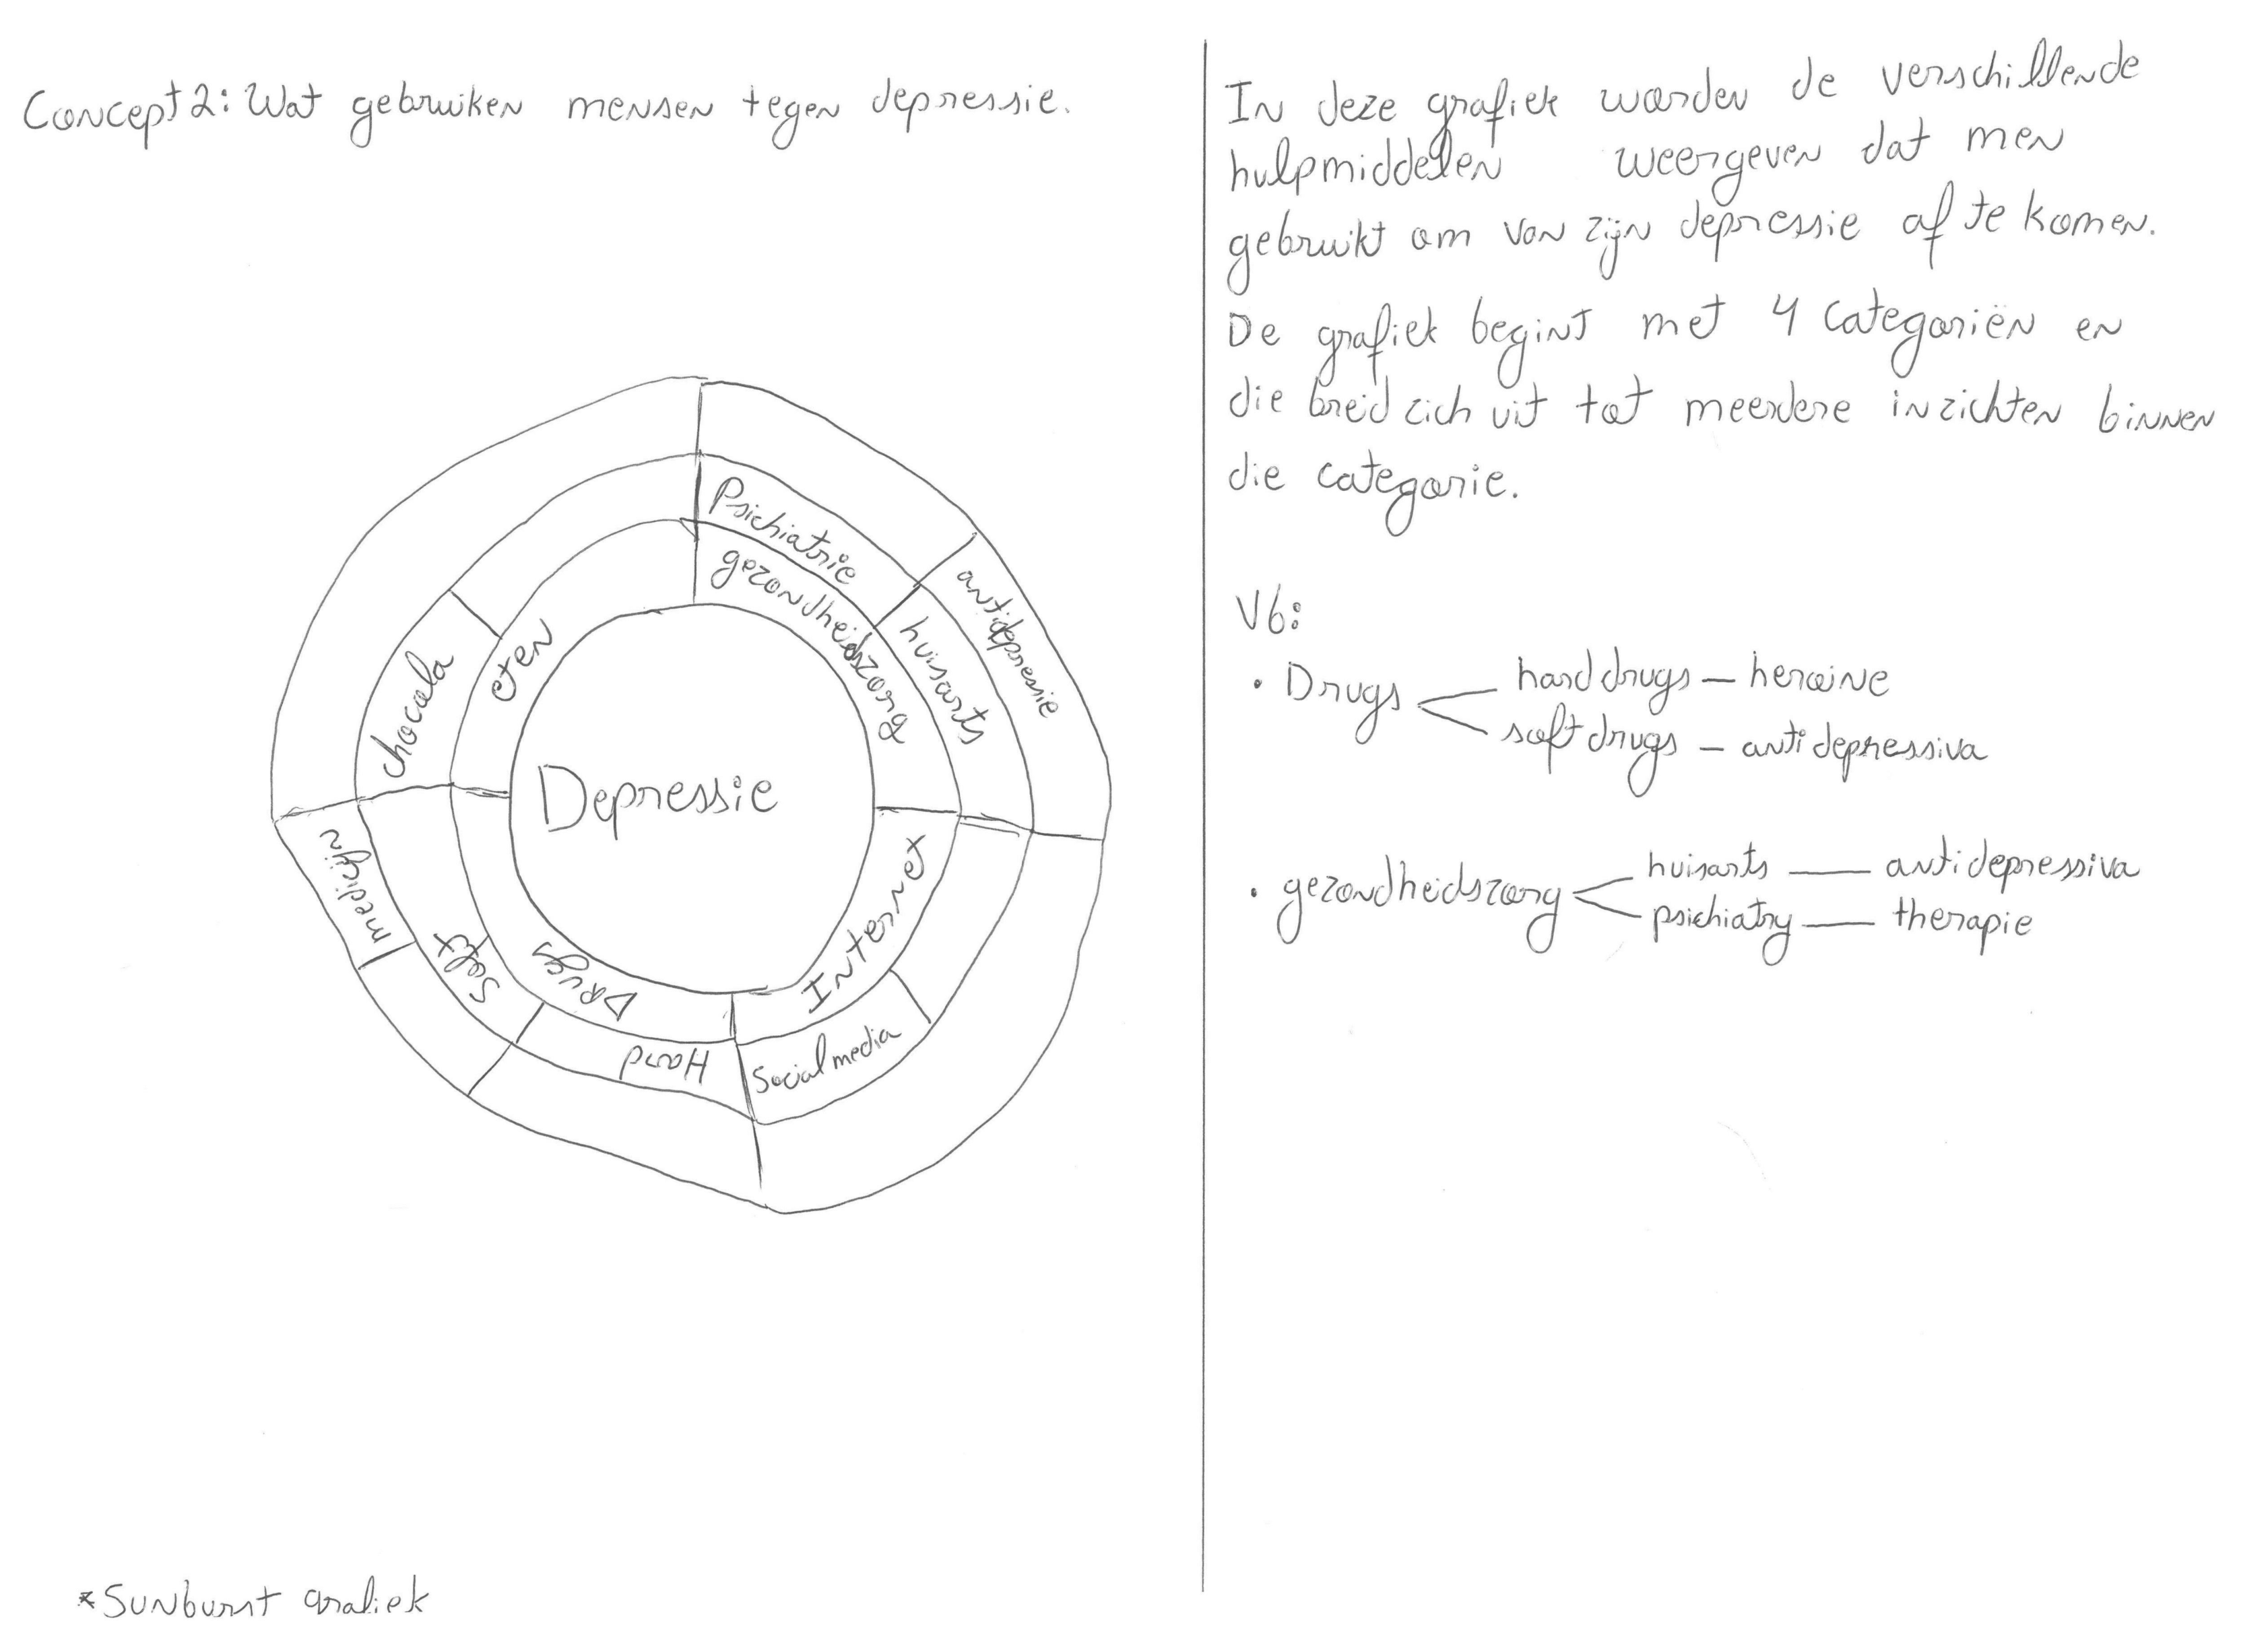 Concept 2: Wat gebruiken mensen tegen depressie.
Psichiatrie
gezondheidszorg
huisarts
antidepressie
eten
chocola
Depressie
Internet
Social media
Drugs
Hard
Soft
medicijn
*Sunburst grafiek
In deze grafiek worden de verschillende
hulpmiddelen weergeven dat men
gebruikt om van zijn depressie af te komen.
De grafiek begint met 4 categoriën en
die breid zich uit tot meerdere inzichten binnen
die categorie.
Vb:
• Drugs < hard drugs — heroïne
soft drugs — anti depressiva
• gezondheidszorg < huisarts — anti depressiva
psichiatry — therapie